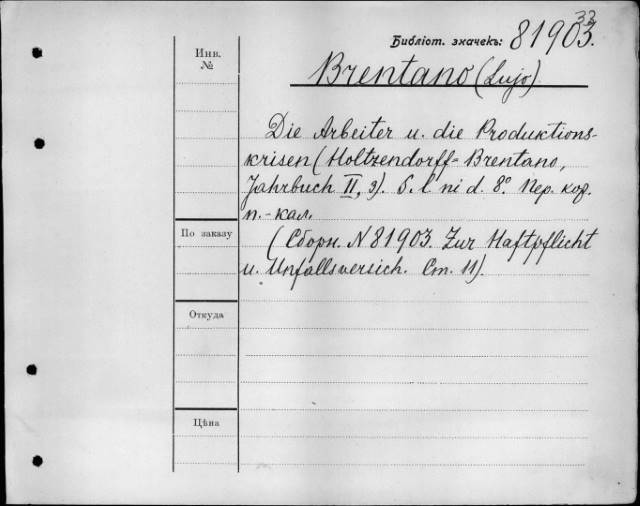 33
Библіот. значекъ: 81903.
Инв.
№
Brentano (Lujo).
Die Arbeiter u. die Produktions-
krisen (Holtzendorff-Brentano,
Jahrbuch II, 3). S. l ni d. 8°. Пер. кор.
п.-кал.
По заказу
(Сборн. N 81903. Zur Haftpflicht
u. Unfallsversich. Ст. 11).
Откуда
Цѣна